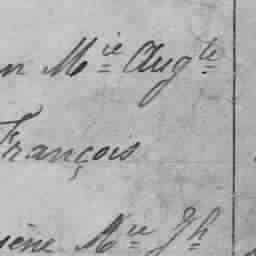 n Mie Augte
François
ène Mie Jh